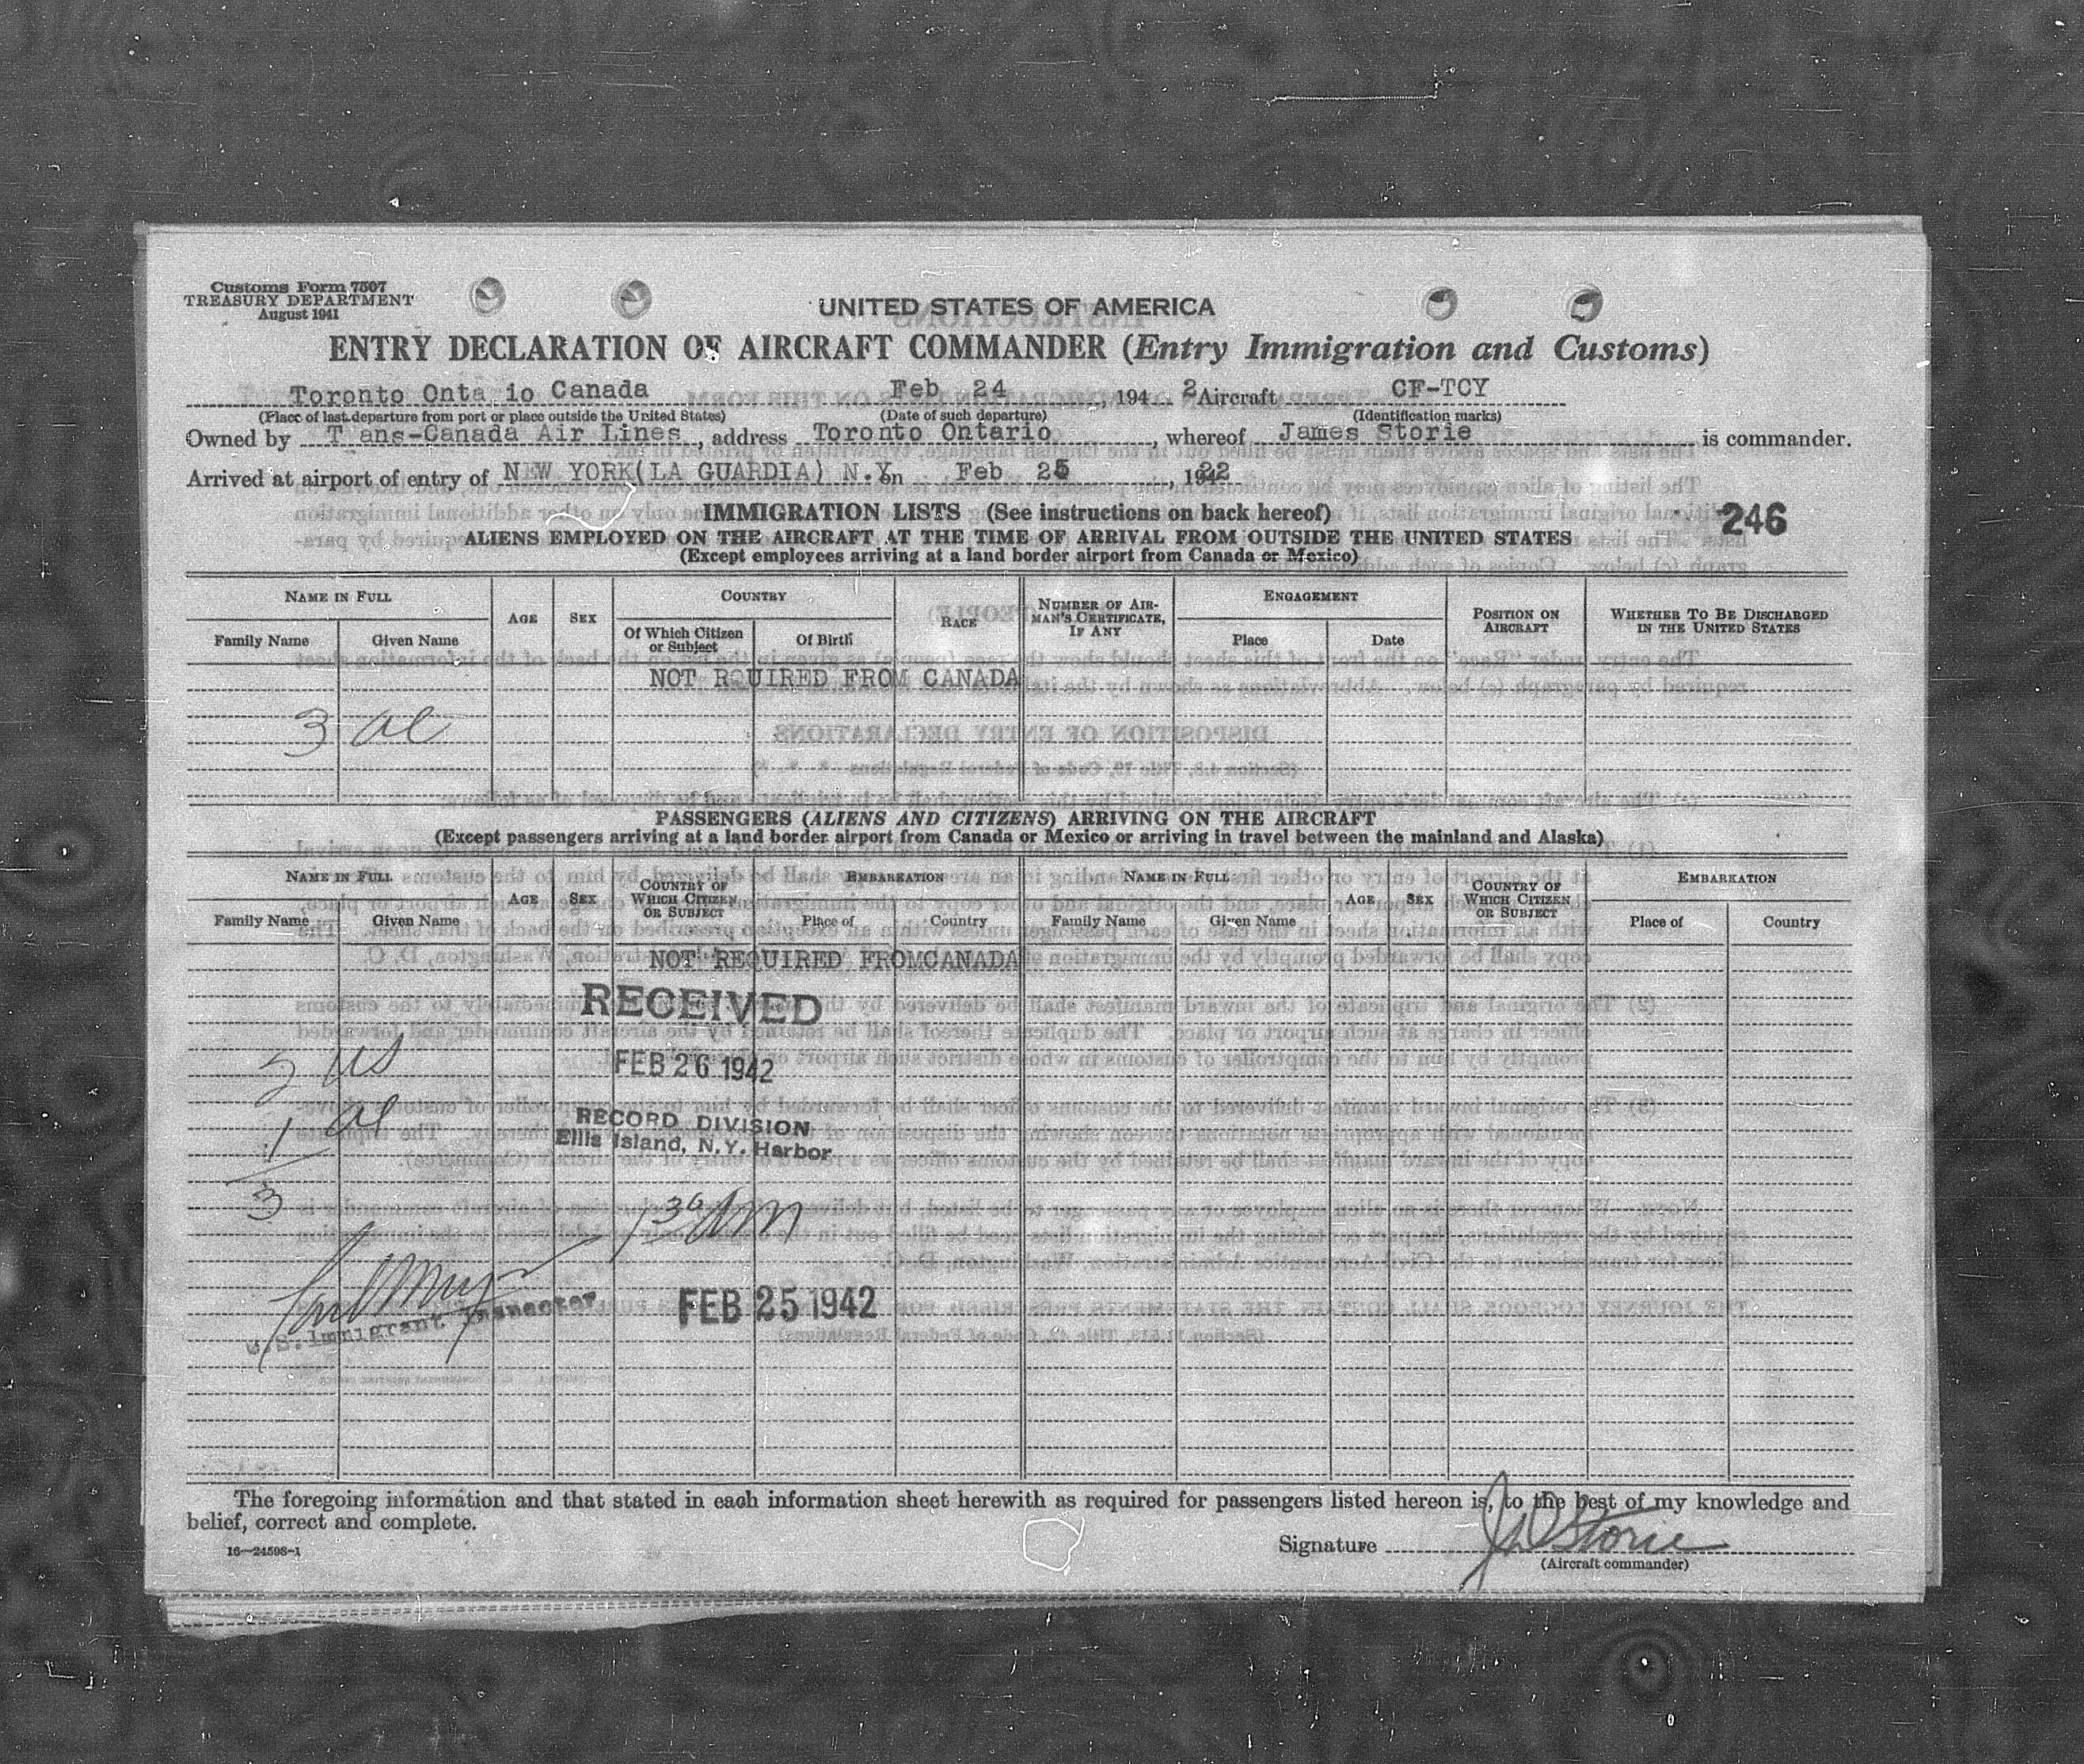 Customs Form 7507
TREASURY DEPARTMENT
August 1941
UNITED STATES OF AMERICA
ENTRY DECLARATION OF AIRCRAFT COMMANDER (Entry Immigration and Customs)
Toronto Onta io Canada Feb 24, 194 2 Aircraft CF-TCY
(Place of last departure from port or place outside the United States) (Date of such departure) (Identification marks)
Owned by T ans-Canada Air Lines, address Toronto Ontario, whereof James Storie is commander.
Arrived at airport of entry of NEW YORK(LA GUARDIA) N.Y. on Feb 25, 1942
IMMIGRATION LISTS (See instructions on back hereof)
246
ALIENS EMPLOYED ON THE AIRCRAFT AT THE TIME OF ARRIVAL FROM OUTSIDE THE UNITED STATES
(Except employees arriving at a land border airport from Canada or Mexico)
NAME IN FULL AGE SEX COUNTRY RACE NUMBER OF AIRMAN'S CERTIFICATE, IF ANY ENGAGEMENT POSITION ON AIRCRAFT WHETHER TO BE DISCHARGED IN THE UNITED STATES
Family Name Given Name Of Which Citizen or Subject Of Birth Place Date
NOT RQUIRED FROM CANADA
3 al
PASSENGERS (ALIENS AND CITIZENS) ARRIVING ON THE AIRCRAFT
(Except passengers arriving at a land border airport from Canada or Mexico or arriving in travel between the mainland and Alaska)
NAME IN FULL AGE SEX COUNTRY OF WHICH CITIZEN OR SUBJECT EMBARKATION NAME IN FULL AGE SEX COUNTRY OF WHICH CITIZEN OR SUBJECT EMBARKATION
Family Name Given Name Place of Country Family Name Given Name Place of Country
NOT REQUIRED FROMCANADA
RECEIVED
FEB 26 1942
2 us
RECORD DIVISION
Ellis Island, N.Y. Harbor
1 al
3
1 30 AM
U.S. Immigrant Inspector
FEB 25 1942
The foregoing information and that stated in each information sheet herewith as required for passengers listed hereon is, to the best of my knowledge and
belief, correct and complete.
Signature J Storie
16—24598-1
(Aircraft commander)